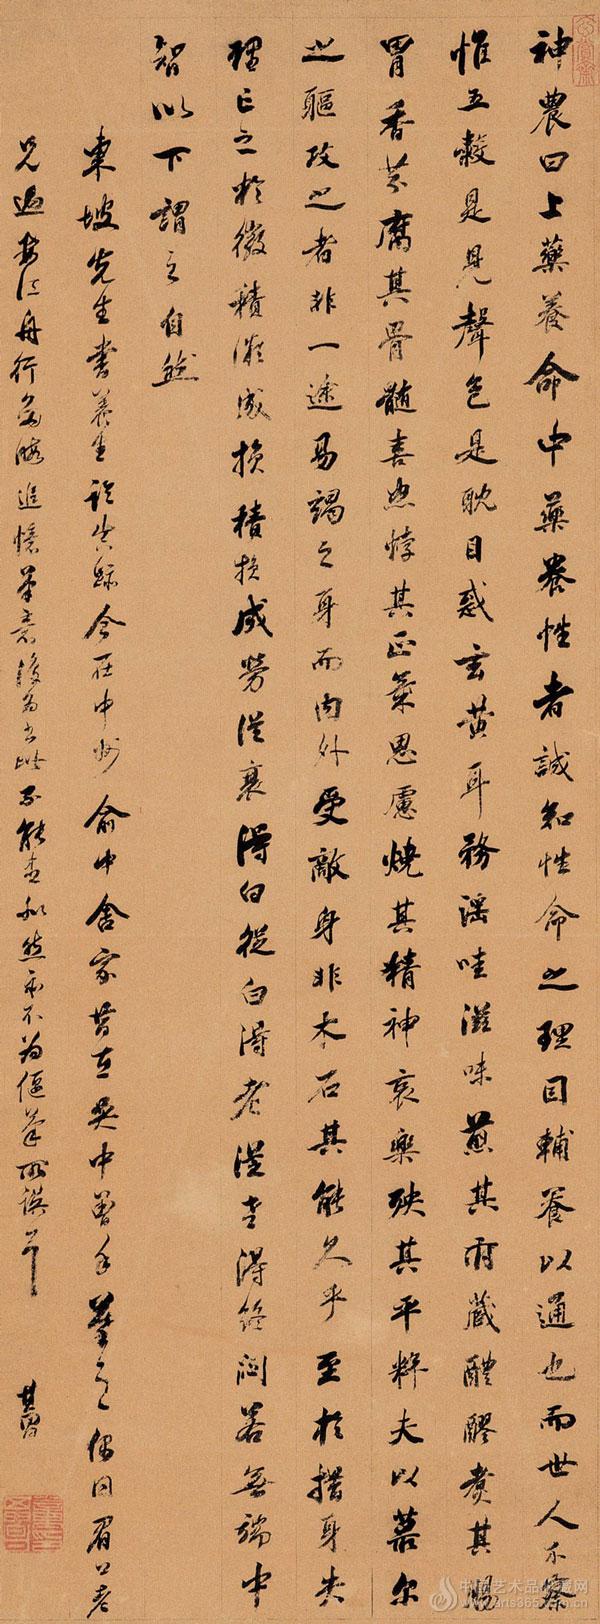 神農曰上藥養命中藥養性者誠知性命之理因輔養以通也而世人不察
惟五穀是見聲色是耽目惑玄黃耳務滛哇滋味煎其府藏醴醪煑其腸
胃香芳腐其骨髓喜怒悖其正氣思慮燒其精神哀樂殃其平粹夫以蕞尔
之軀攻之者非一途易竭之身而内外受敵身非木石其能久乎至於措身失
理亡之於微積微成損積損成勞從衰得白從白得老從老得終悶若無端中
智以下謂之自然
東坡先生書養生論真跡今在中州俞中舍家昔在吳中曾手摹之偶同眉公老
兄過安江舟行多暇追憶筆意復爲書此不能甚似然亦不爲偃筆所誤耳
其昌